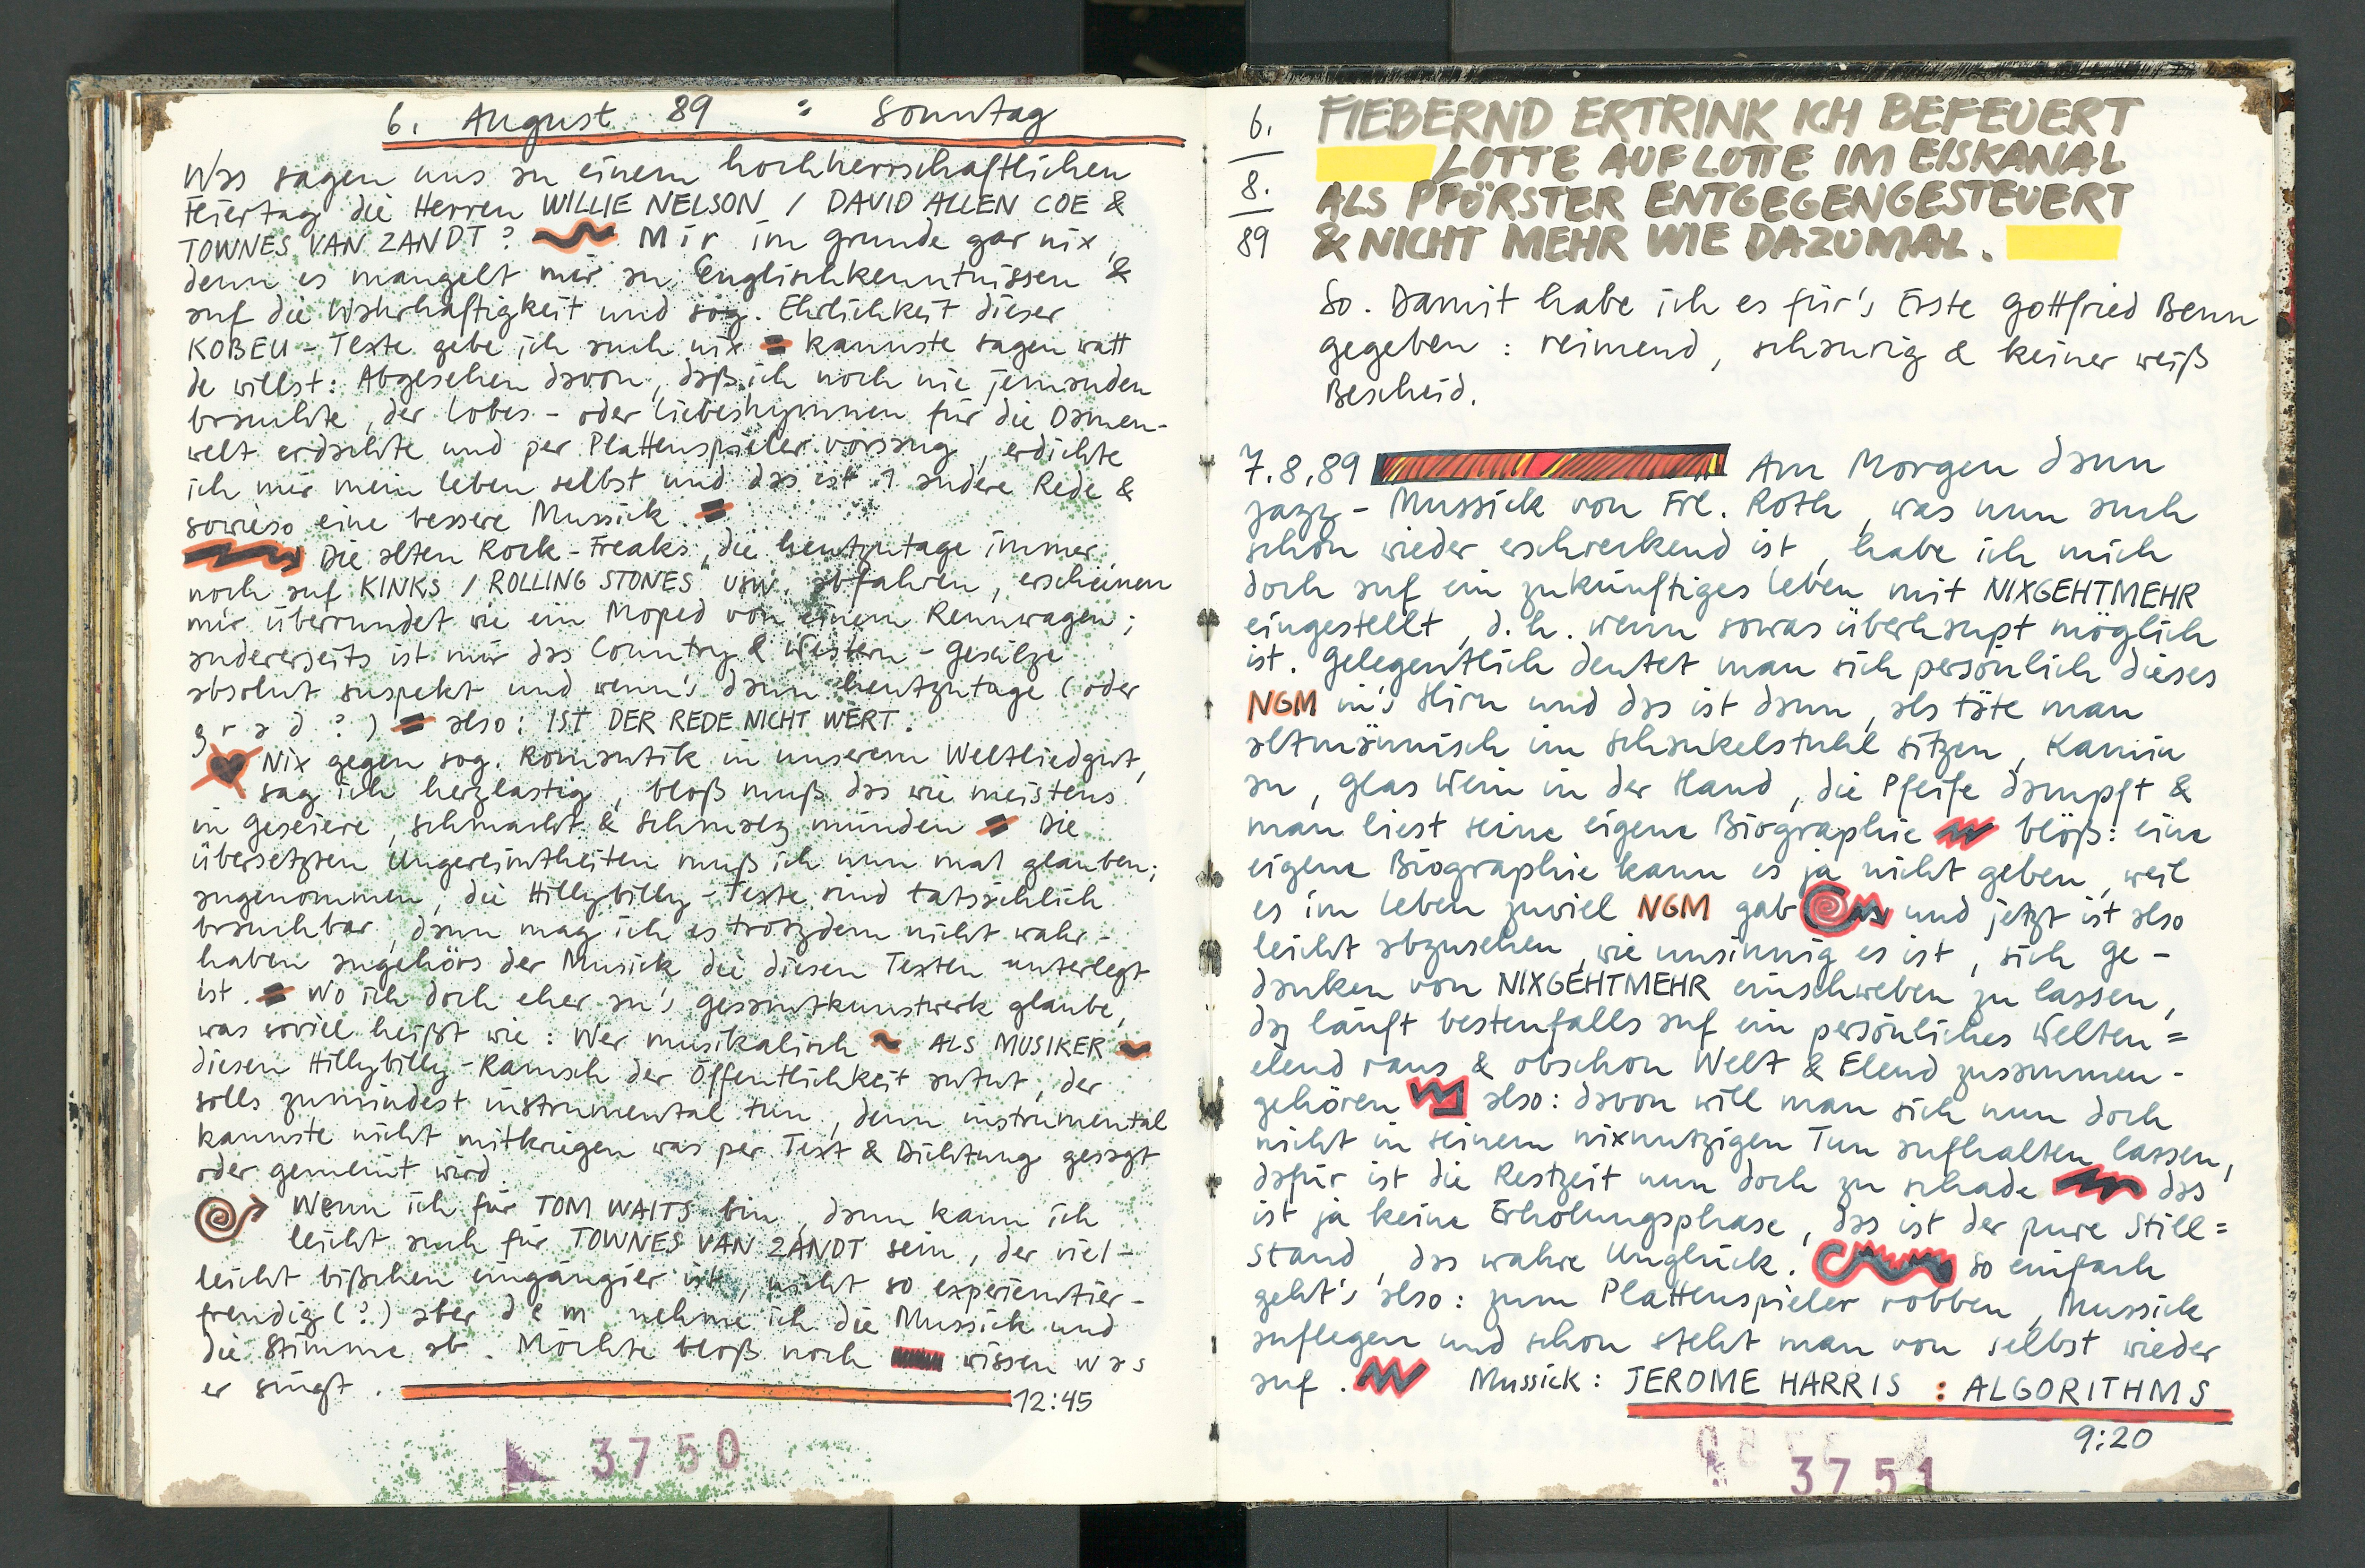 6. August 89 : Sonntag
Was sagen uns zu einem hochherrschaftlichen
Feiertag die Herren WILLIE NELSON / DAVID ALLEN COE &
TOWNES VAN ZANDT? Mir im Grunde gar nix,
denn es mangelt mir an Englischkenntnissen &
auf die Wahrhaftigkeit und sog. Ehrlichkeit dieser
KOBEU-Texte gebe ich auch nix kannste sagen watt
de willst: Abgesehen davon, daß ich noch nie jemanden
brauchte, der Lobes- oder Liebeshymnen für die Damen-
welt erdachte und per Plattenspieler vorsang, erdichte
ich mir mein Leben selbst und das ist 1 andere Rede &
sowieso eine bessere Mussick.
Die alten Rock-Freaks, die heutzutage immer
noch auf KINKS / ROLLING STONES usw. abfahren, erscheinen
mir überrundet wie ein Moped von einem Rennwagen;
andererseits ist mir das Country & Western-Gesülze
absolut suspekt und wenn's dann heutzutage (oder
grad?) also: IST DER REDE NICHT WERT.
Nix gegen sog. Romantik in unserem Weltliedgut,
sag ich herzlastig, bloß muß das wie meistens
in Geseiere, Schmacht & Schmalz münden Die
übersetzten Ungereimtheiten muß ich nun mal glauben;
angenommen, die Hillybilly-Texte sind tatsächlich
brauchbar, dann mag ich es trotzdem nicht wahr-
haben angehörs der Musick die diesen Texten unterlegt
ist. Wo ich doch eher an's Gesamtkunstwerk glaube,
was soviel heißt wie: Wer musikalisch ALS MUSIKER
diesen Hillybilly-Ramsch der Öffentlichkeit antut, der
solls zumindest instrumental tun, denn instrumental
kannste nicht mitkriegen was per Text & Dichtung gesagt
oder gemeint wird.
Wenn ich für TOM WAITS bin, dann kann ich
leicht auch für TOWNES VAN ZANDT sein, der viel-
leicht bißchen eingängier ist, nicht so experientier-
freudig (?) aber dem nehme ich die Mussick und
die Stimme ab. Möchte bloß noch wissen was
er singt. 12:45
3750
6.
8.
89
FIEBERND ERTRINK ICH BEFEUERT
LOTTE AUF LOTTE IM EISKANAL
ALS PFÖRSTER ENTGEGENGESTEUERT
& NICHT MEHR WIE DAZUMAL.
So. Damit habe ich es für's Erste Gottfried Benn
gegeben: reimend, schaurig & keiner weiß
Bescheid.
7.8.89 Am Morgen dann
Jazz-Mussick von Frl. Roth, was nun auch
schon wieder erschreckend ist, habe ich mich
doch auf ein zukünftiges Leben mit NIXGEHTMEHR
eingestellt, d.h. wenn sowas überhaupt möglich
ist. Gelegentlich deutet man sich persönlich dieses
NGM in's Hirn und das ist dann, als täte man
altmännisch im Schaukelstuhl sitzen, Kamin
an, Glas Wein in der Hand, die Pfeife dampft &
man liest seine eigene Biographie bloß: eine
eigene Biographie kann es ja nicht geben, weil
es im Leben zuviel NGM gab und jetzt ist also
leicht abzusehen, wie unsinnig es ist, sich Ge-
danken von NIXGEHTMEHR einschweben zu lassen,
das läuft bestenfalls auf ein persönliches Welten=
elend raus & obschon Welt & Elend zusammen-
gehören also: davon will man sich nun doch
nicht in seinem nixnutzigen Tun aufhalten lassen,
dafür ist die Restzeit nun doch zu schade das
ist ja keine Erholungsphase, das ist der pure Still=
stand, das wahre Unglück. So einfach
geht's also: zum Plattenspieler robben, Mussick
auflegen und schon steht man von selbst wieder
auf. Mussick: JEROME HARRIS : ALGORITHMS
9:20
3751